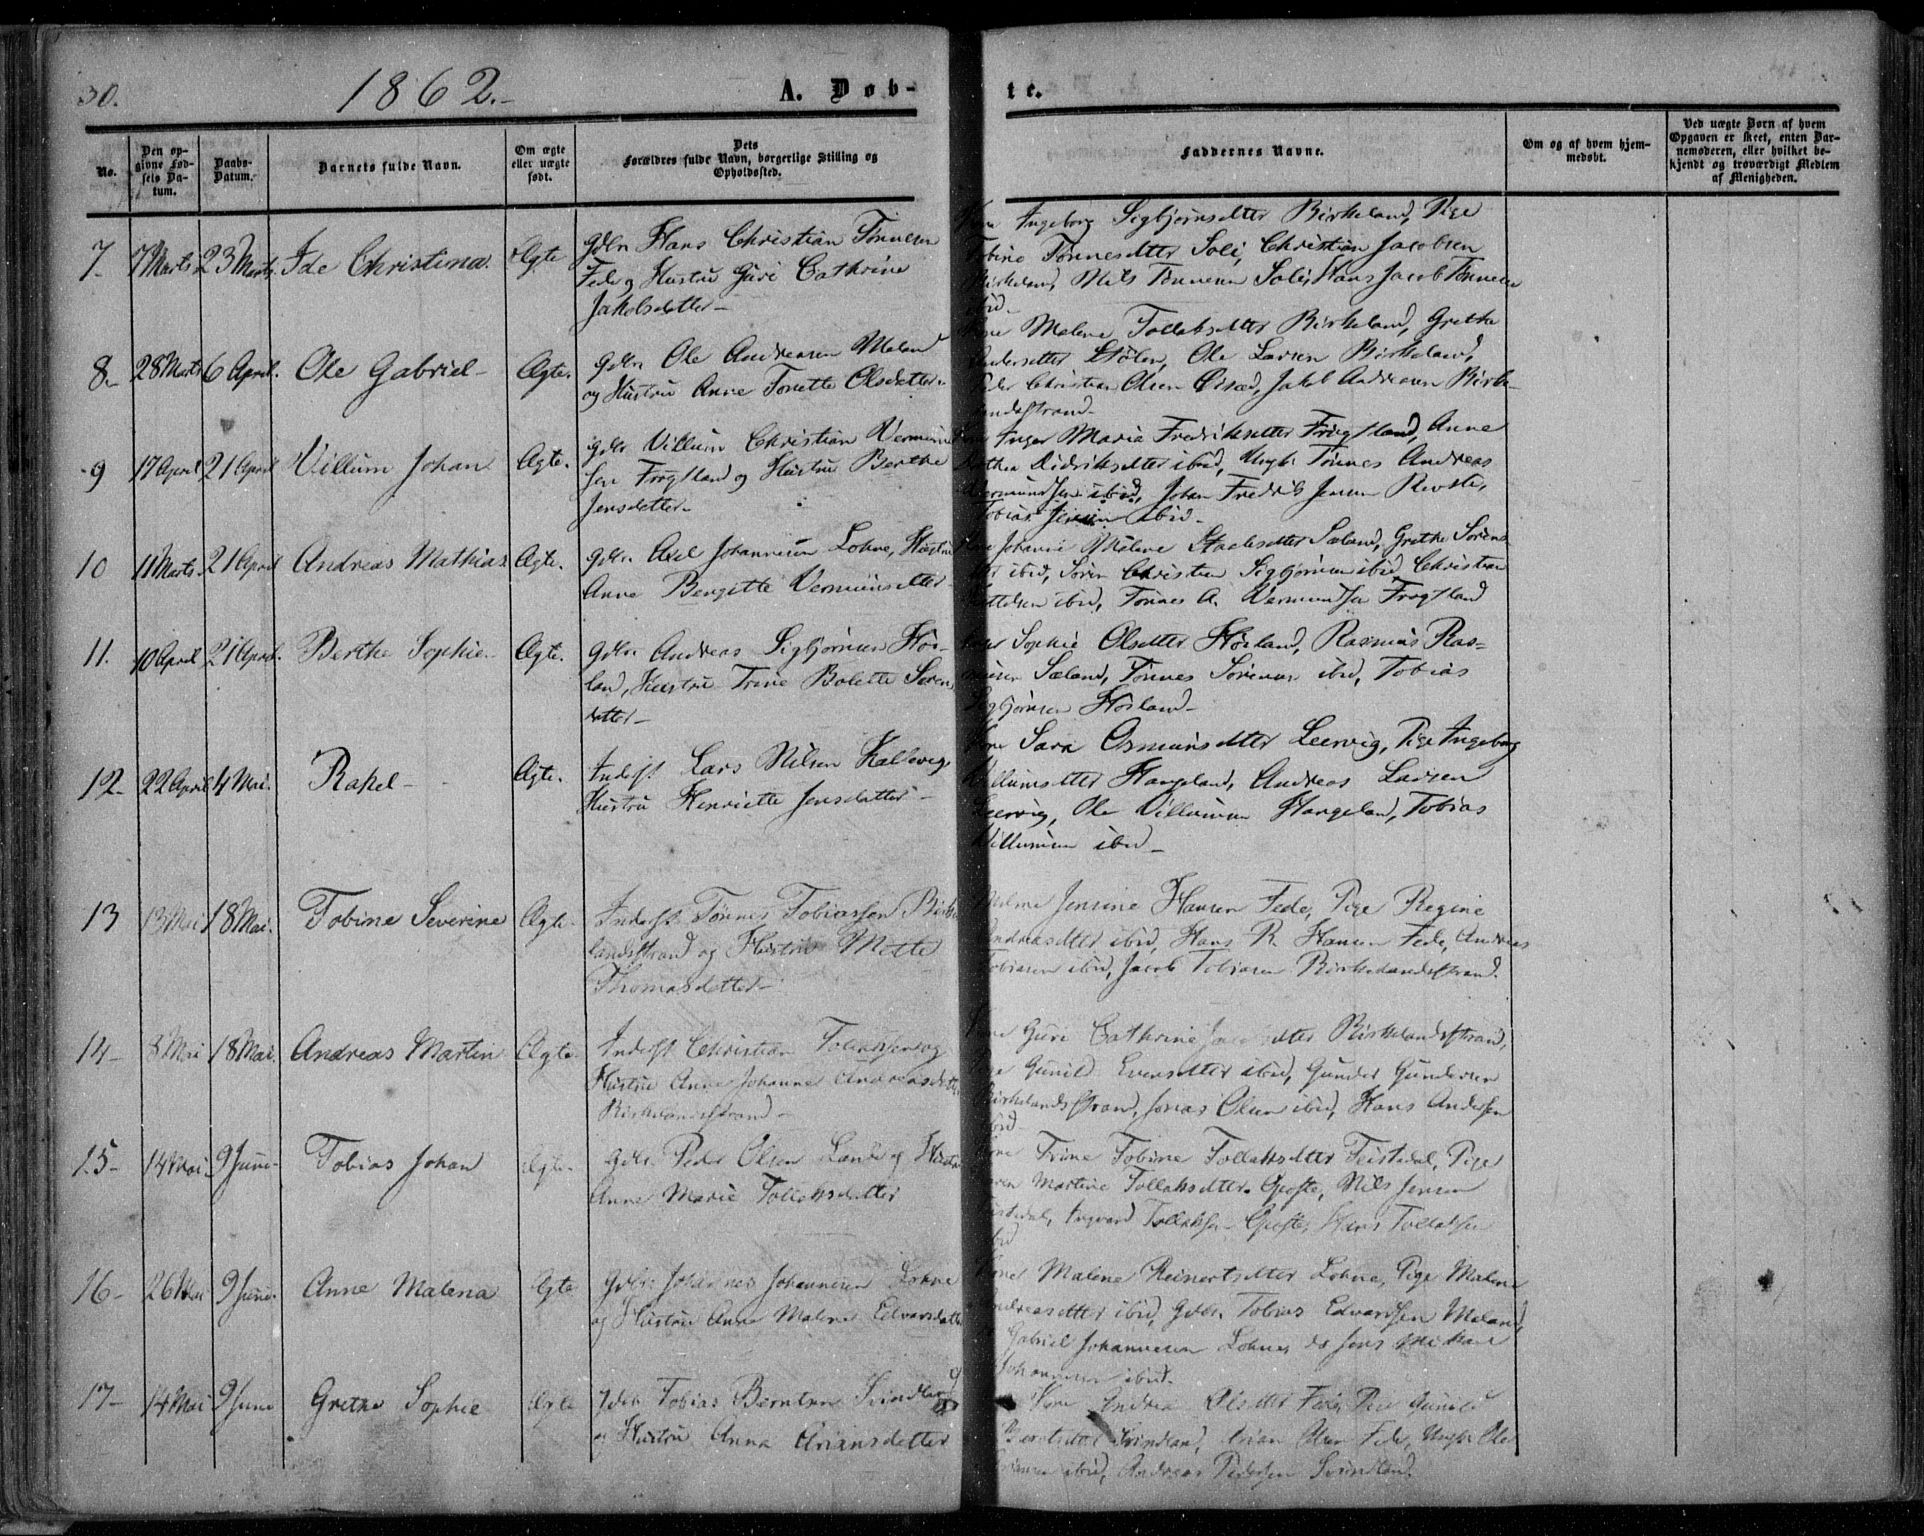 30.
1862.-
A. Døb-
te.
No.
Den opgivne Fødsels Datum.
Daabs-Datum.
Barnets fulde Navn.
Om ægte eller uægte født.
Dets Forældres fulde Navn, borgerlige Stilling og Opholdssted.
Faddernes Navne.
Om og af hvem hjemmedøbt.
Ved uægte Børn af hvem Opgaven er skeet, enten Barnemoderen, eller hvilket bekjendt og troværdigt Medlem af Menigheden.
7. 7 Marts 23 Marts Ide Christina. Ægte Gdbr Hans Christian Tønnesen
Fede og Hustru Guri Cathrine
Jakobsdatter -
Ingeborg Sigbjørnsdtter Birkeland, Pige
Tobine Tønnesdtter Soli, Christian Jacobsen
Birkeland, Nils Tønnesen Soli, Hans Jacob Tønnesen
ibid -
8. 28 Marts 6 April. Ole Gabriel - Ægte. Gdbr Ole Andreasen Meland
og Hustru Anne Tonette Olsdatter -
Malene Tollaksdtter Birkeland, Grethe
Andersdtter Stølen, Ole Larsen Birkeland,
Peder Christian Olsen, Jakob Andreasen Birke-
landsstrand -
9 17 April 21 April Villum Johan Ægte. Gdbr Villum Christian Vermund
sen Frøgtland og Hustru Berthe
Jensdatter -
Inger Maria Fredriksdtter Frøgtland, Anne
Didriksdtter ibid, Ungk. Tønnes Andreas
Vermundsen ibid, Johan Fredrik Jensen Revste,
Tobias Jensen ibid -
10 11 Marts 21 April Andreas Mathias Ægte. Gdbr. Axel Johannesen Lohne, Hustru
Anne Bergitte Vermundsdatter
Johanne Malene Stoelesdtter Sæland, Grethe Sørens
dtter ibid, Søren Christian Sigbjørnsen ibid, Christian
ibid, Tønnes A. Vermundsen Frøgtland
11. 10 April 21 April. Berthe Sophie - Ægte. Gdbr Andreas Sigbjørnsen Høi-
land, Hustru Trine Bolette Søren
datter -
Sophie Olsdtter Høiland, Rasmus Ras-
musen Sæland, Tønnes Sørensen ibid, Tobias
Sigbjørnsen Høiland -
12 22 April 4 Mai. Rakel - Ægte. Inderst Lars Nilsen Kallevig,
Hustru Henriette Jensdatter -
Kone Sara Osmundsdtter Leervig, Pige Ingeborg
Villumsdtter Haugeland, Andreas Larsen
Leervig, Ole Villumsen Haugeland, Tobias
Villumsen ibid -
13 13 Mai 18 Mai. Tobine Severine Ægte - Inderst Tønnes Tobiassen Birke
landsstrand og Hustru Mette
Thomasdatter -
Jensine Hansen Fede, Pige Regine
Andreasdtter ibid, Hans R. Hansen Fede, Andreas
Tobiasen ibid, Jacob Tobiasen Birkelandsstrand.
14 - 8 Mai 18 Mai. Andreas Martin Ægte Inderst Christian og
Hustru Anne Johanne Andreasdatter
Birkelandsstrand -
Guri Cathrine Birkelandsstrand,
Pige Gunild Evensdtter ibid, Gunder Gundersen
Birkelandsstrand, Jonas Olsen ibid, Hans Andersen
ibid -
15 - 14 Mai 9 Juni - Tobias Johan Ægte - Gdbr. Peder Olsen Lande og Hustru
Anne Marie Tollaksdatter
Kone Trine Tobine Tollaksdtter Feistedal, Pige
Martine Tollaksdtter, Nils Jensen
Ingvard Tollaksen, Hans Tollaksen
ibid
16 - 26 Mai 9 Juni - Anne Malena Ægte Gdbr Johannes Johannesen Lohne
og Hustru Anne Malene Edvardsdatter
Kone Malene Reinertsdtter Lohne, Pige Malene
Andreasdtter ibid, Gdbr. Tobias Edvardsen Meland,
Gabriel Johannesen Lohne, do Jens Mikael
Johannesen ibid -
17 - 14 Mai 9 Juni Grethe Sophie Ægte Gdbr Tobias Berntsen Svindland
og Hustru Anna Ariansdatter
Kone Andrea Olsdtter Fede, Pige Gunild
Berntsdtter Svindland, Arian Olsen Fede, Ungk. Ole
ibid, Andreas Pedersen Svindland.